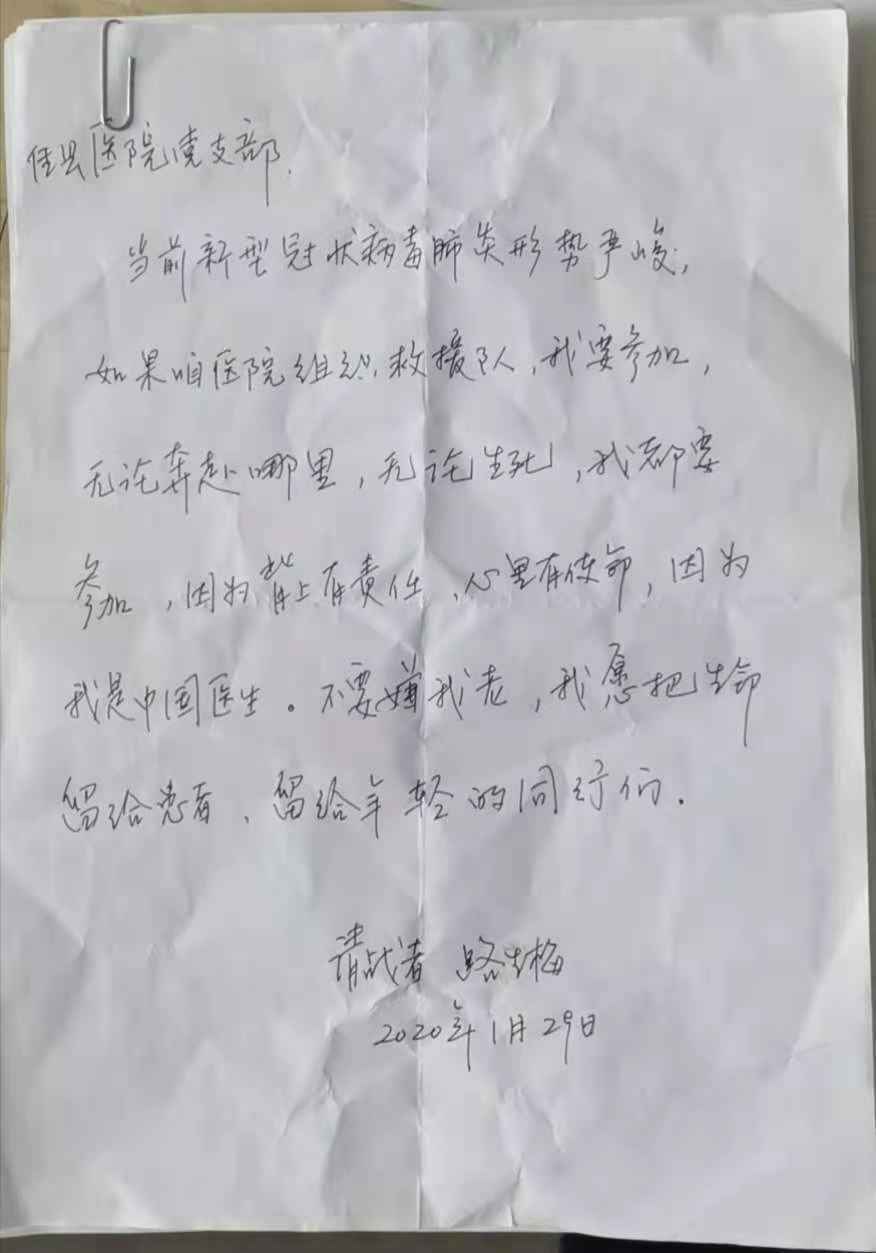 佳县医院党支部.
当前新型冠状病毒肺炎形势严峻,
如果咱医院组织救援队,我要参加,
无论奔赴哪里,无论生死,我都要
参加,因为背上有责任,心里有使命,因为
我是中国医生。不要嫌我老,我愿把生命
留给患者、留给年轻的同行们.
请战者 路生梅
2020年1月29日